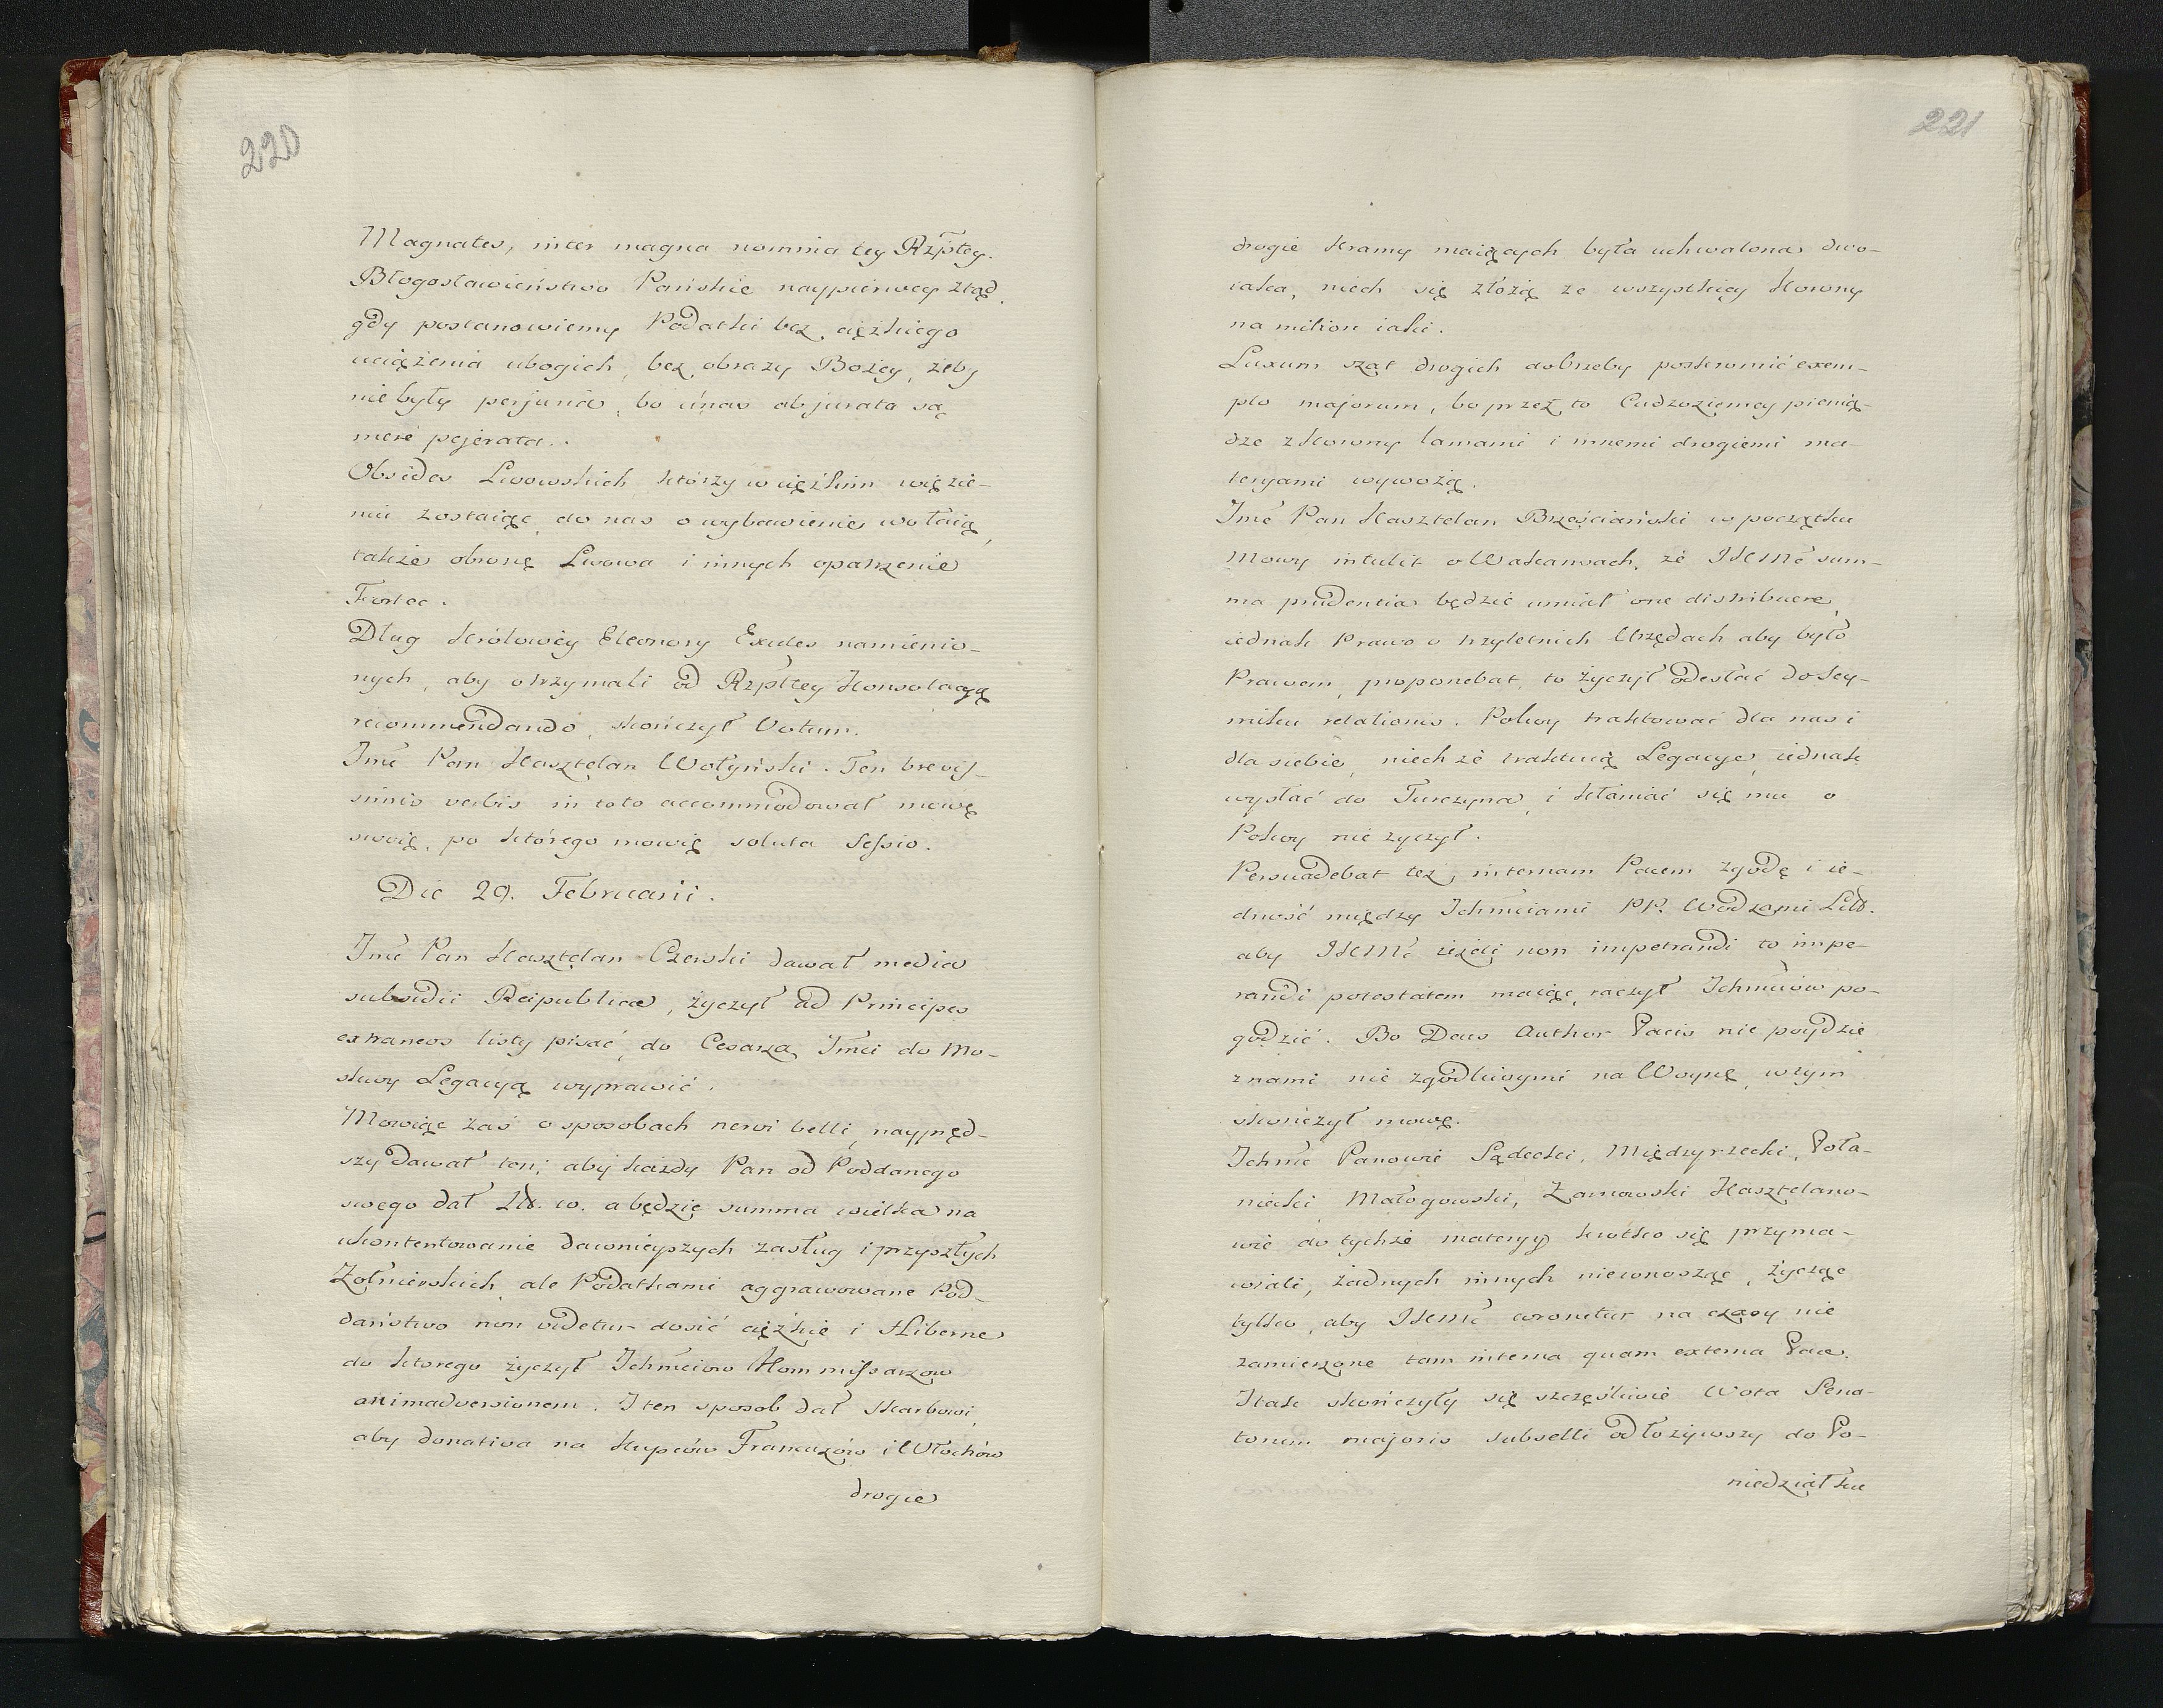 220
Magnates, inter magna nomina tey Rzptey.
Błogosławieństwo Pańskie naypierwey ztąd,
gdy postanowiemy Podatki bez ciężkiego
uciążenia ubogich, bez obrazy Bożey, żeby
niebyły perjuria, bo unas abjurata są
mere pejerata.
Obsides Lwowskich, którzy w ciężkim więzie-
niu zostaiąc, do nas o wybawienie wołaią,
także obronę Lwowa i innych opatrzenie
Fortec.
Dług Królowey Eleonory Exules namienio-
nych, aby otrzymali od Rzpltey Konsolacyą
recommendando, skończył Votum.
Jmć Pan Kasztelan Wołyński. Ten brevis-
simis verbis in toto accommodował mowę
swoię, po którego mowię soluta Sessio.
Die 29. Februarii.
Jmć Pan Kasztelan Czerski dawał media
subsidii Reipublicæ, życzył ad Principes
extraneos listy pisać, do Cesarza Jmci do Mo-
skwy Legacyą wyprawić.
Mowiąc zaś o sposobach nervi belli, naypręd-
szy dawał ten; aby każdy Pan od Poddanego
swego dał zł. 10. a będzie summa wielka na
ukontentowanie dawnieyszych zasług i przyszłych
Żołnierskich, ale Podatkami aggrawowane Pod-
daństwo non videtur dosić ciężkie i Hiberne
do ktorego życzył Ichmciow Kommissarzow
animadversionem. I ten sposob dał Skarbowi,
aby donativa na Kupców Francuzów i Włochów
drogie
221
drogie Kramy maiących była uchwalona dwo-
iaka, niech się złożą ze wszystkiey Korony
na milion iaki.
Luxum szat drogich dobrzeby poskromić exem-
plo majorum, bo przez to Cudzoziemcy pienią-
dze z Korony lamami i innemi drogiemi ma-
teryami wywożą.
Jmć Pan Kasztelan Brześciański w początku
Mowy intulit o Wakansach, że JKMć sum-
ma prudentia będzie umiał one distribuere,
iednak Prawo o trzyletnich Urzędach aby było
Prawem, proponebat, to życzył odesłać do Sey-
miku relationis. Pokoy traktować dla nas i
dla siebie, niech że traktuią Legacye, iednak
wysłać do Turczyna, i kłaniać się mu o
Pokoy nie zyczył.
Persuadebat też, internam Pacem zgodę i ie-
dność między Ichmciami PP. Wodzami Litt.
aby JKMć ieżeli non impetrandi to impe-
randi potestatem maiąc, raczył Ichmciów po-
godzić. Bo Deus Author Pacis nie poydzie
z nami nie zgodliwymi na Woynę, w tym
skończył mowę.
Ichmć Panowie Sądecki, Międzyrzecki, Poła-
niecki, Małogowski, Żarnowski Kasztelano-
wie do tychże materyy krotko się przyma-
wiali, żadnych innych niewnosząc, życząc
tylko, aby JKMć coronetur na czasy nie
zamierzone tam interna quam externa Pace.
I tak skończyły się szczęśliwie Wota Sena-
torum majoris subselli odłożywszy do Po-
niedziałku